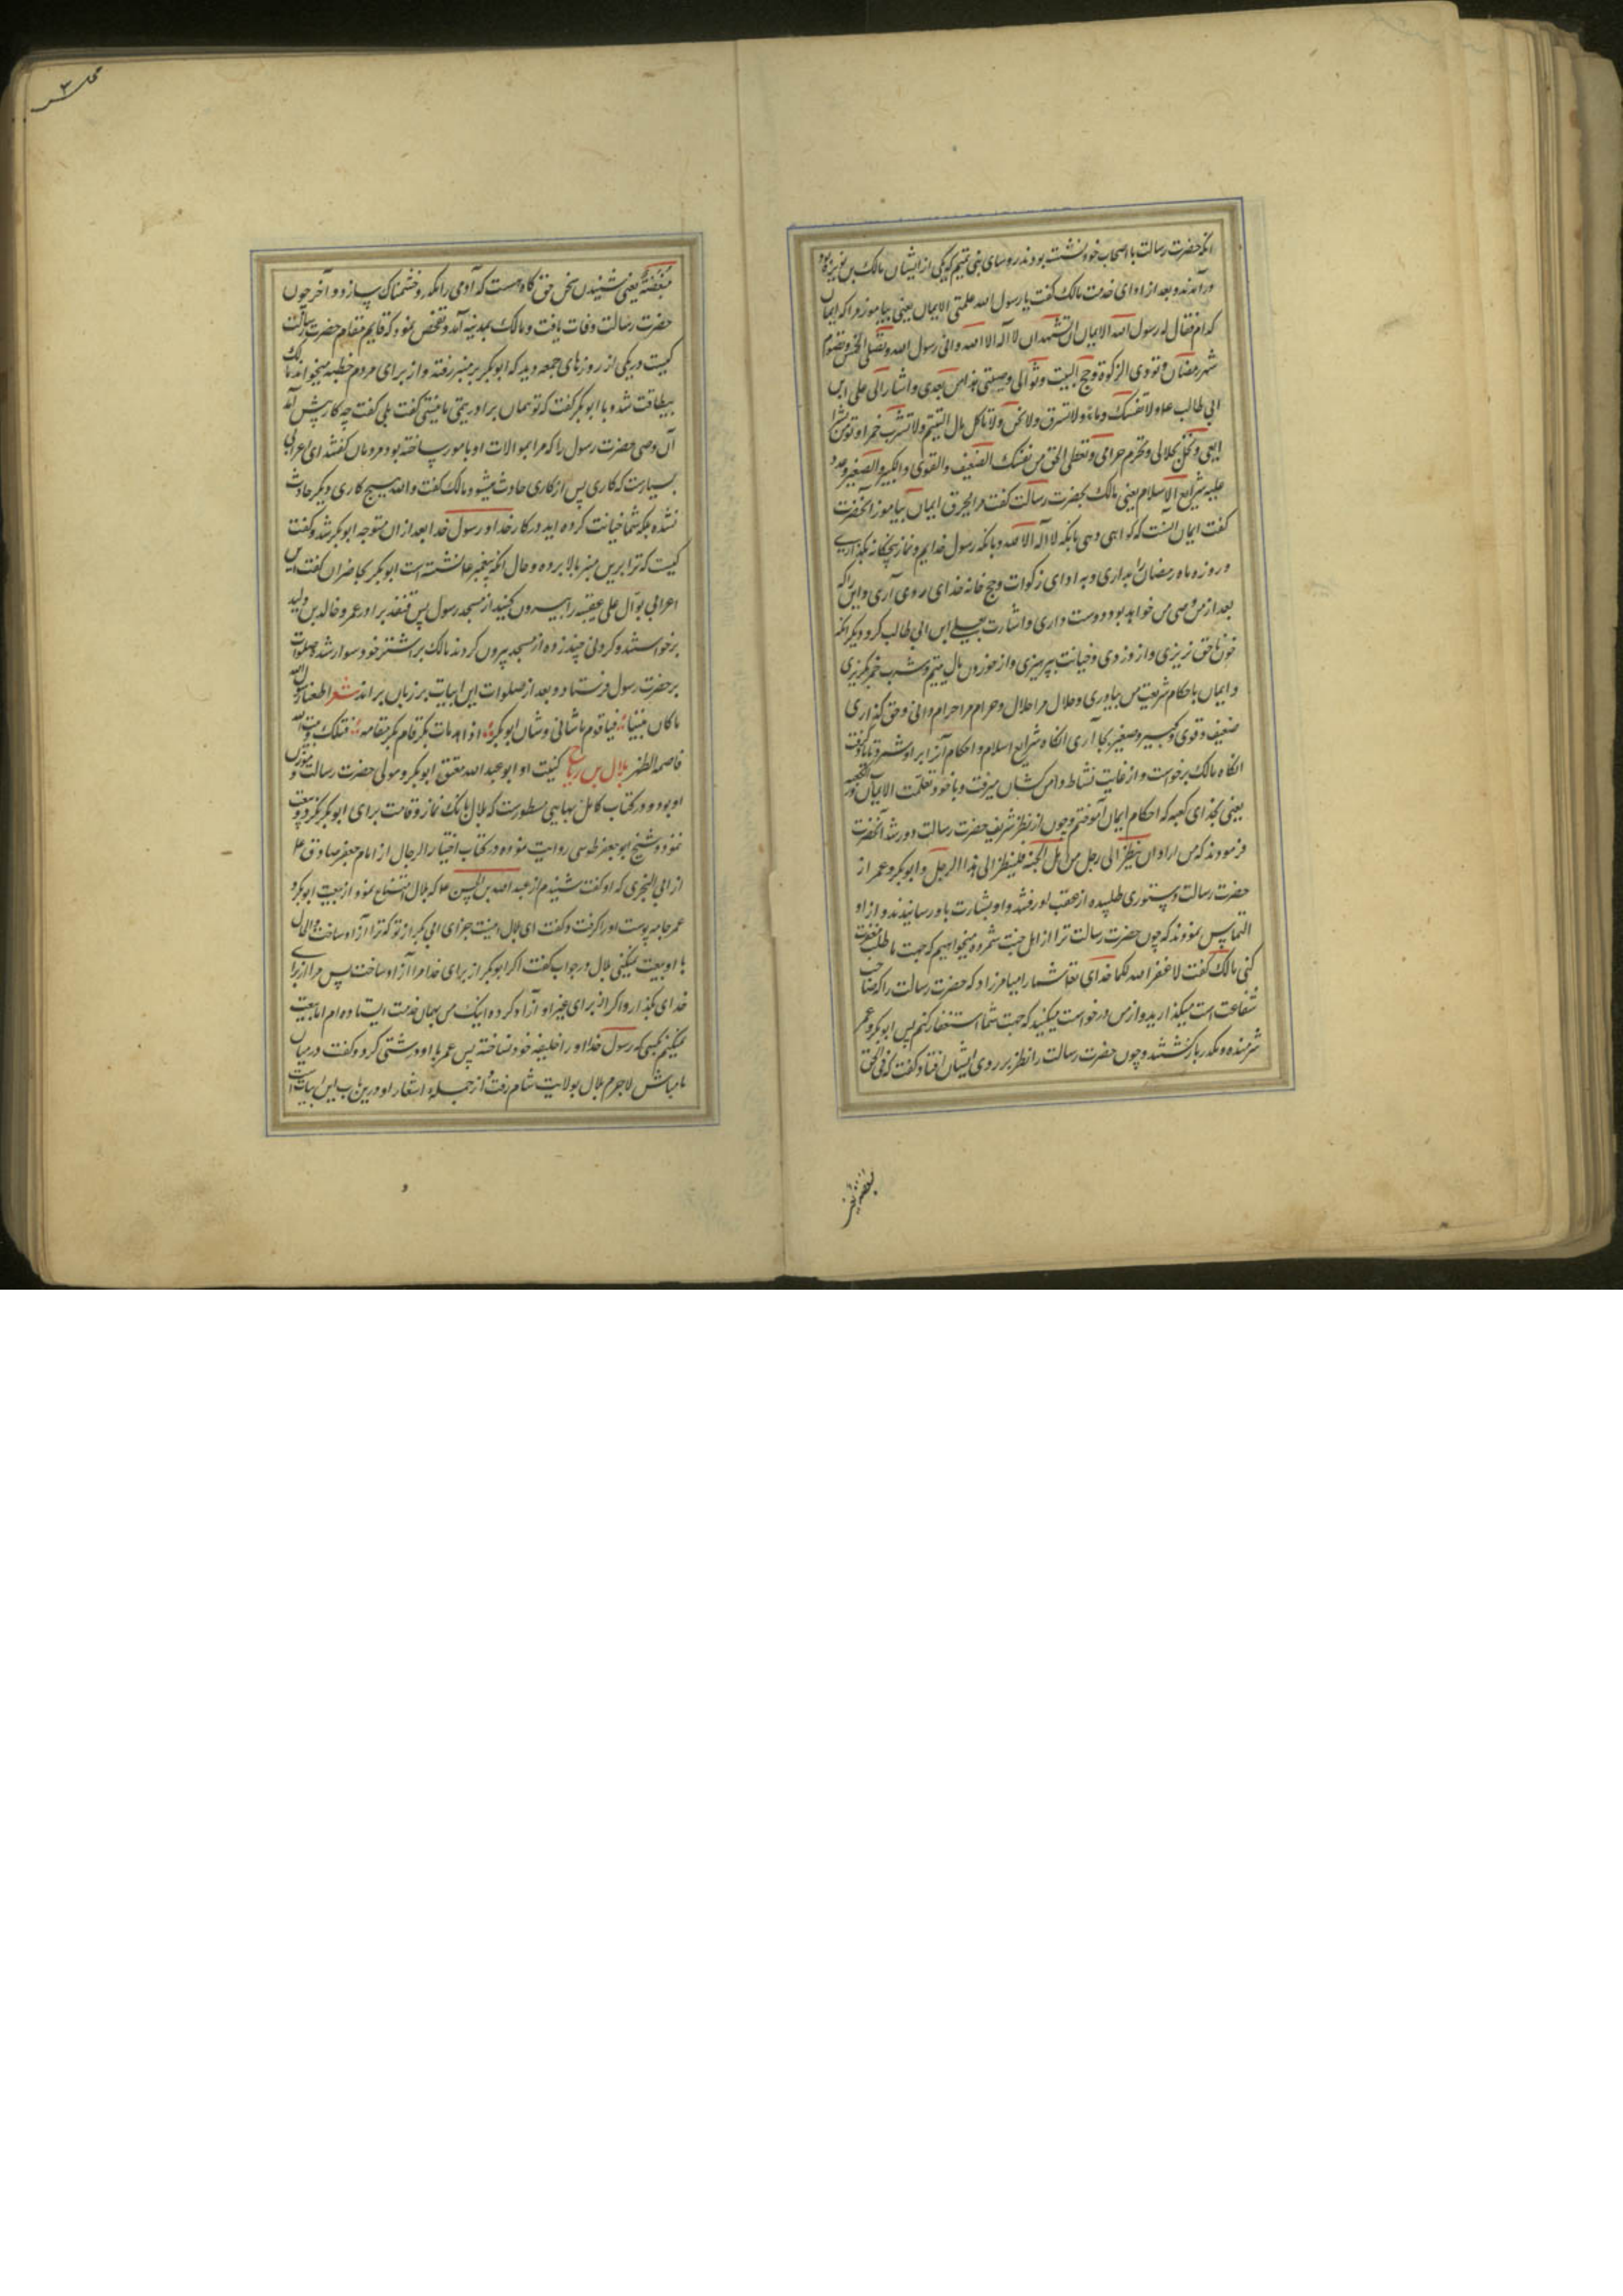 انکه حضرت رسالت با اصحاب خود نشسته بودند روسای بنی تمیم که یکی از ایشان مالک بن نویره بود
درآمدند و بعد از ادای خدمت مالک گفت یا رسول الله علمنی الایمان یعنی بیاموز مرا که ایمان
کدام فقال له رسول الله الایمان ان تشهد ان لا اله الا الله و انی رسول الله و تصلی الخمس و تصوم
شهر رمضان و تودی الزکوة و تحج البیت و توالی وصیی هذا من بعدی و اشار الی علی ابن
ابی طالب ع و لا تسفک دما و لا تسرق و لا تخن و لا تاکل مال الیتیم و لا تشرب خمرا و تومن بشر
ایعی و تحلل حلالی و تحرم حرامی و تعطی الحق من نفسک الضعیف و القوی و الکبیر و الصغیر و عد
علیه شرایع الاسلام یعنی مالک بحضرت رسالت گفت مرا طریق ایمان بیاموز آنحضرت
گفت ایمان آنست که گواهی دهی بانکه لا اله الا الله و بانکه رسول خدایم و نماز پنجگانه بگذاری
و روزه ماه رمضان بداری و به ادای زکوات و حج خانه خدای روی آری و این را که
بعد از من وصی من خواهد بود دوست داری و اشارت بعلی ابن ابی طالب کرد و دیگر انکه
خون ناحق نریزی و از دزدی و خیانت بپرهیزی و از خوردن مال یتیم و شرب خمر بگریزی
و ایمان باحکام شریعت من بیاوری و حلال مرا حلال و حرام مرا حرام دانی و حق گذاری
ضعیف و قوی و کبیر و صغیر بجا آری انکاه شرایع اسلام و احکام آنرا براو شمرد تا یاد گرفت
انکاه مالک برخواست و از غایت نشاط دامن کشان میرفت و با خود تعلمت الایمان و رب الکعبه
یعنی بخدای کعبه که احکام ایمان آموختم و چون از نظر شریف حضرت رسالت دور شد آنحضرت
فرمودند که من اراد ان ینظر الی رجل من اهل الجنه فلینظر الی هذا الرجل و ابو بکر و عمر از
حضرت رسالت دستوری طلبیده از عقب او رفتند و او بشارت باو رسانیدند و از او
التماس نمودند که چون حضرت رسالت ترا از اهل جنت شمرده میخواهیم که جهت ما طلب مغفرت
کنی مالک گفت لا غفر الله لکما خدای تعا شما را نیامرزاد که حضرت رسالت را که صاحب
شفاعت است میگذارید و از من درخواست میکنید که جهت شما استغفار کنم پس ابو بکر و عمر
شرمنده و مکدر باز کشتند و چون حضرت رسالت را نظر بر روی ایشان افتاد گفت که فی الحق
مبغضة یعنی شنیدن سخن حق گاه هست که آدمی را مکدر و خشمناک سازد و آخر چون
حضرت رسالت وفات یافت و مالک بمدینه آمد و تفحص نمود که قایم مقام حضرت رسالت
کیست در یکی از روزهای جمعه دید که ابو بکر بر منبر رفته و از برای مردم خطبه میخواند مالک
بیطاقت شد و با ابو بکر گفت که تو همان برادر تیمی ما نیستی گفت بلی گفت چه کار پیش آمد
آن وصی حضرت رسول را که مرا بموالات او مامور ساخته بود مردمان گفتند ای اعرابی
بسیارست که کاری پس از کاری حادث میشود مالک گفت والله هیچ کاری دیگر حادث
نشده بلکه شما خیانت کرده اید در کار خدا و رسول خدا بعد از آن متوجه ابو بکر شد و گفت
کیست که ترا برین منبر بالا برده و حال آنکه وصی پیغمبر ع نشسته است ابو بکر بحاضران گفت این
اعرابی بوال علی عقبیه را بیرون کنید از مسجد رسول پس قنفذ برادر عمر و خالد بن ولید
برخواستند و گردنی چند زده از مسجد بیرون کردند مالک بر اشتر خود سوار شده صلوات
بر حضرت رسول فرستاد و بعد از صلوات این ابیات بر زبان براند شعر اطعنا رسول الله
ما کان بیننا فیا قوم ما شانی و شان ابو بکر اذا مات بکر قام بکر مقامه فتلک وبیت الله
قاصمة الظهر بلال بن رباح کنیت او ابو عبد الله معتق ابو بکر و مولی حضرت رسالت و موذن
او بود و در کتاب کامل بهایی مسطورست که بلال بانک نماز و قامت برای ابو بکر نکرد و بیعت
ننمود و شیخ ابو جعفر طوسی روایت نموده در کتاب اختیار الرجال از امام جعفر صادق ع
از ابی البختری که او گفت شنیدم از عبد الله بن الحسن ع که بلال امتناع نمود از بیعت ابو بکر و
عمر جامه پوست او را گرفت و گفت ای بلال اینست جزای ابی بکر از تو که ترا آزاد ساخت و الحال
با او بیعت نمیکنی بلال در جواب گفت اگر ابو بکر از برای خدا مرا آزاد ساخت پس مرا از برای
خدای بگذارد و اگر از برای غیر او آزاد کرده اینک من بهمان خدمت ایستاده ام اما بیعت
نمیکنم بکسی که رسول خدا او را خلیفه خود نساخته پس عمر با او درشتی کرد و گفت در میان
ما مباش لاجرم بلال بولایت شام رفت و از جمله اشعار او درین باب این ابیات است